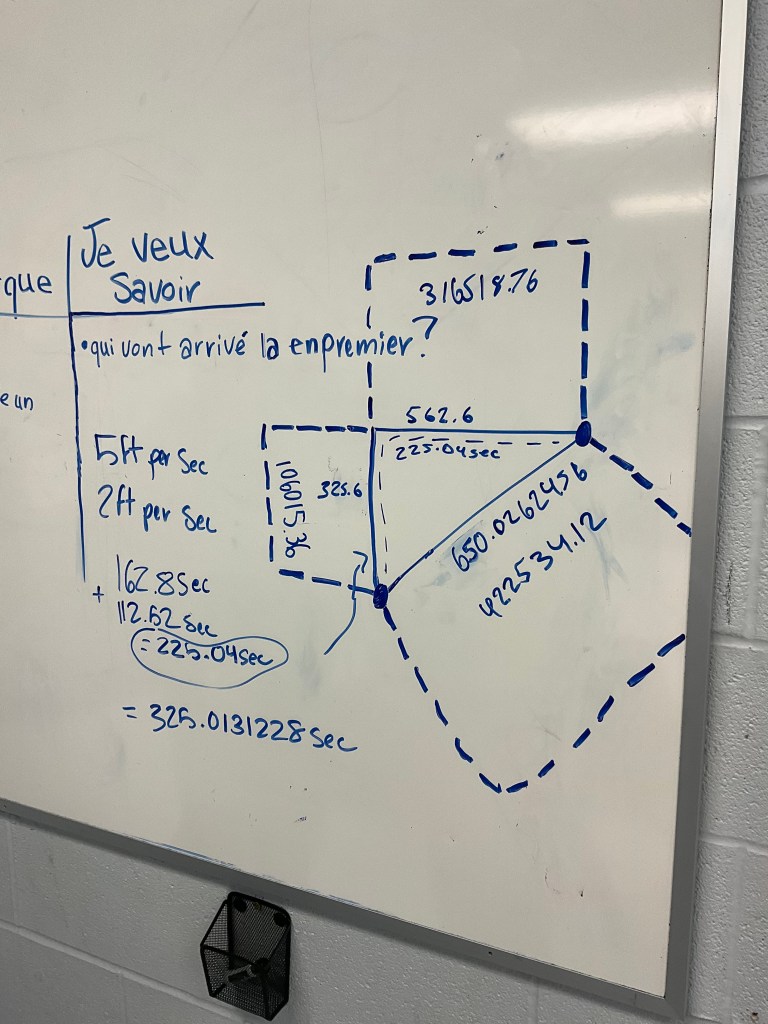 que
e un
Je veux
Savoir
•qui vont arrivé la enpremier?
5ft per Sec
2ft per Sec
+ 162.8Sec
112.52Sec
=225.04sec
= 325.0131228 Sec
316518.76
562.6
225.04sec
325.6
106015.36
650.0262456
422534.12